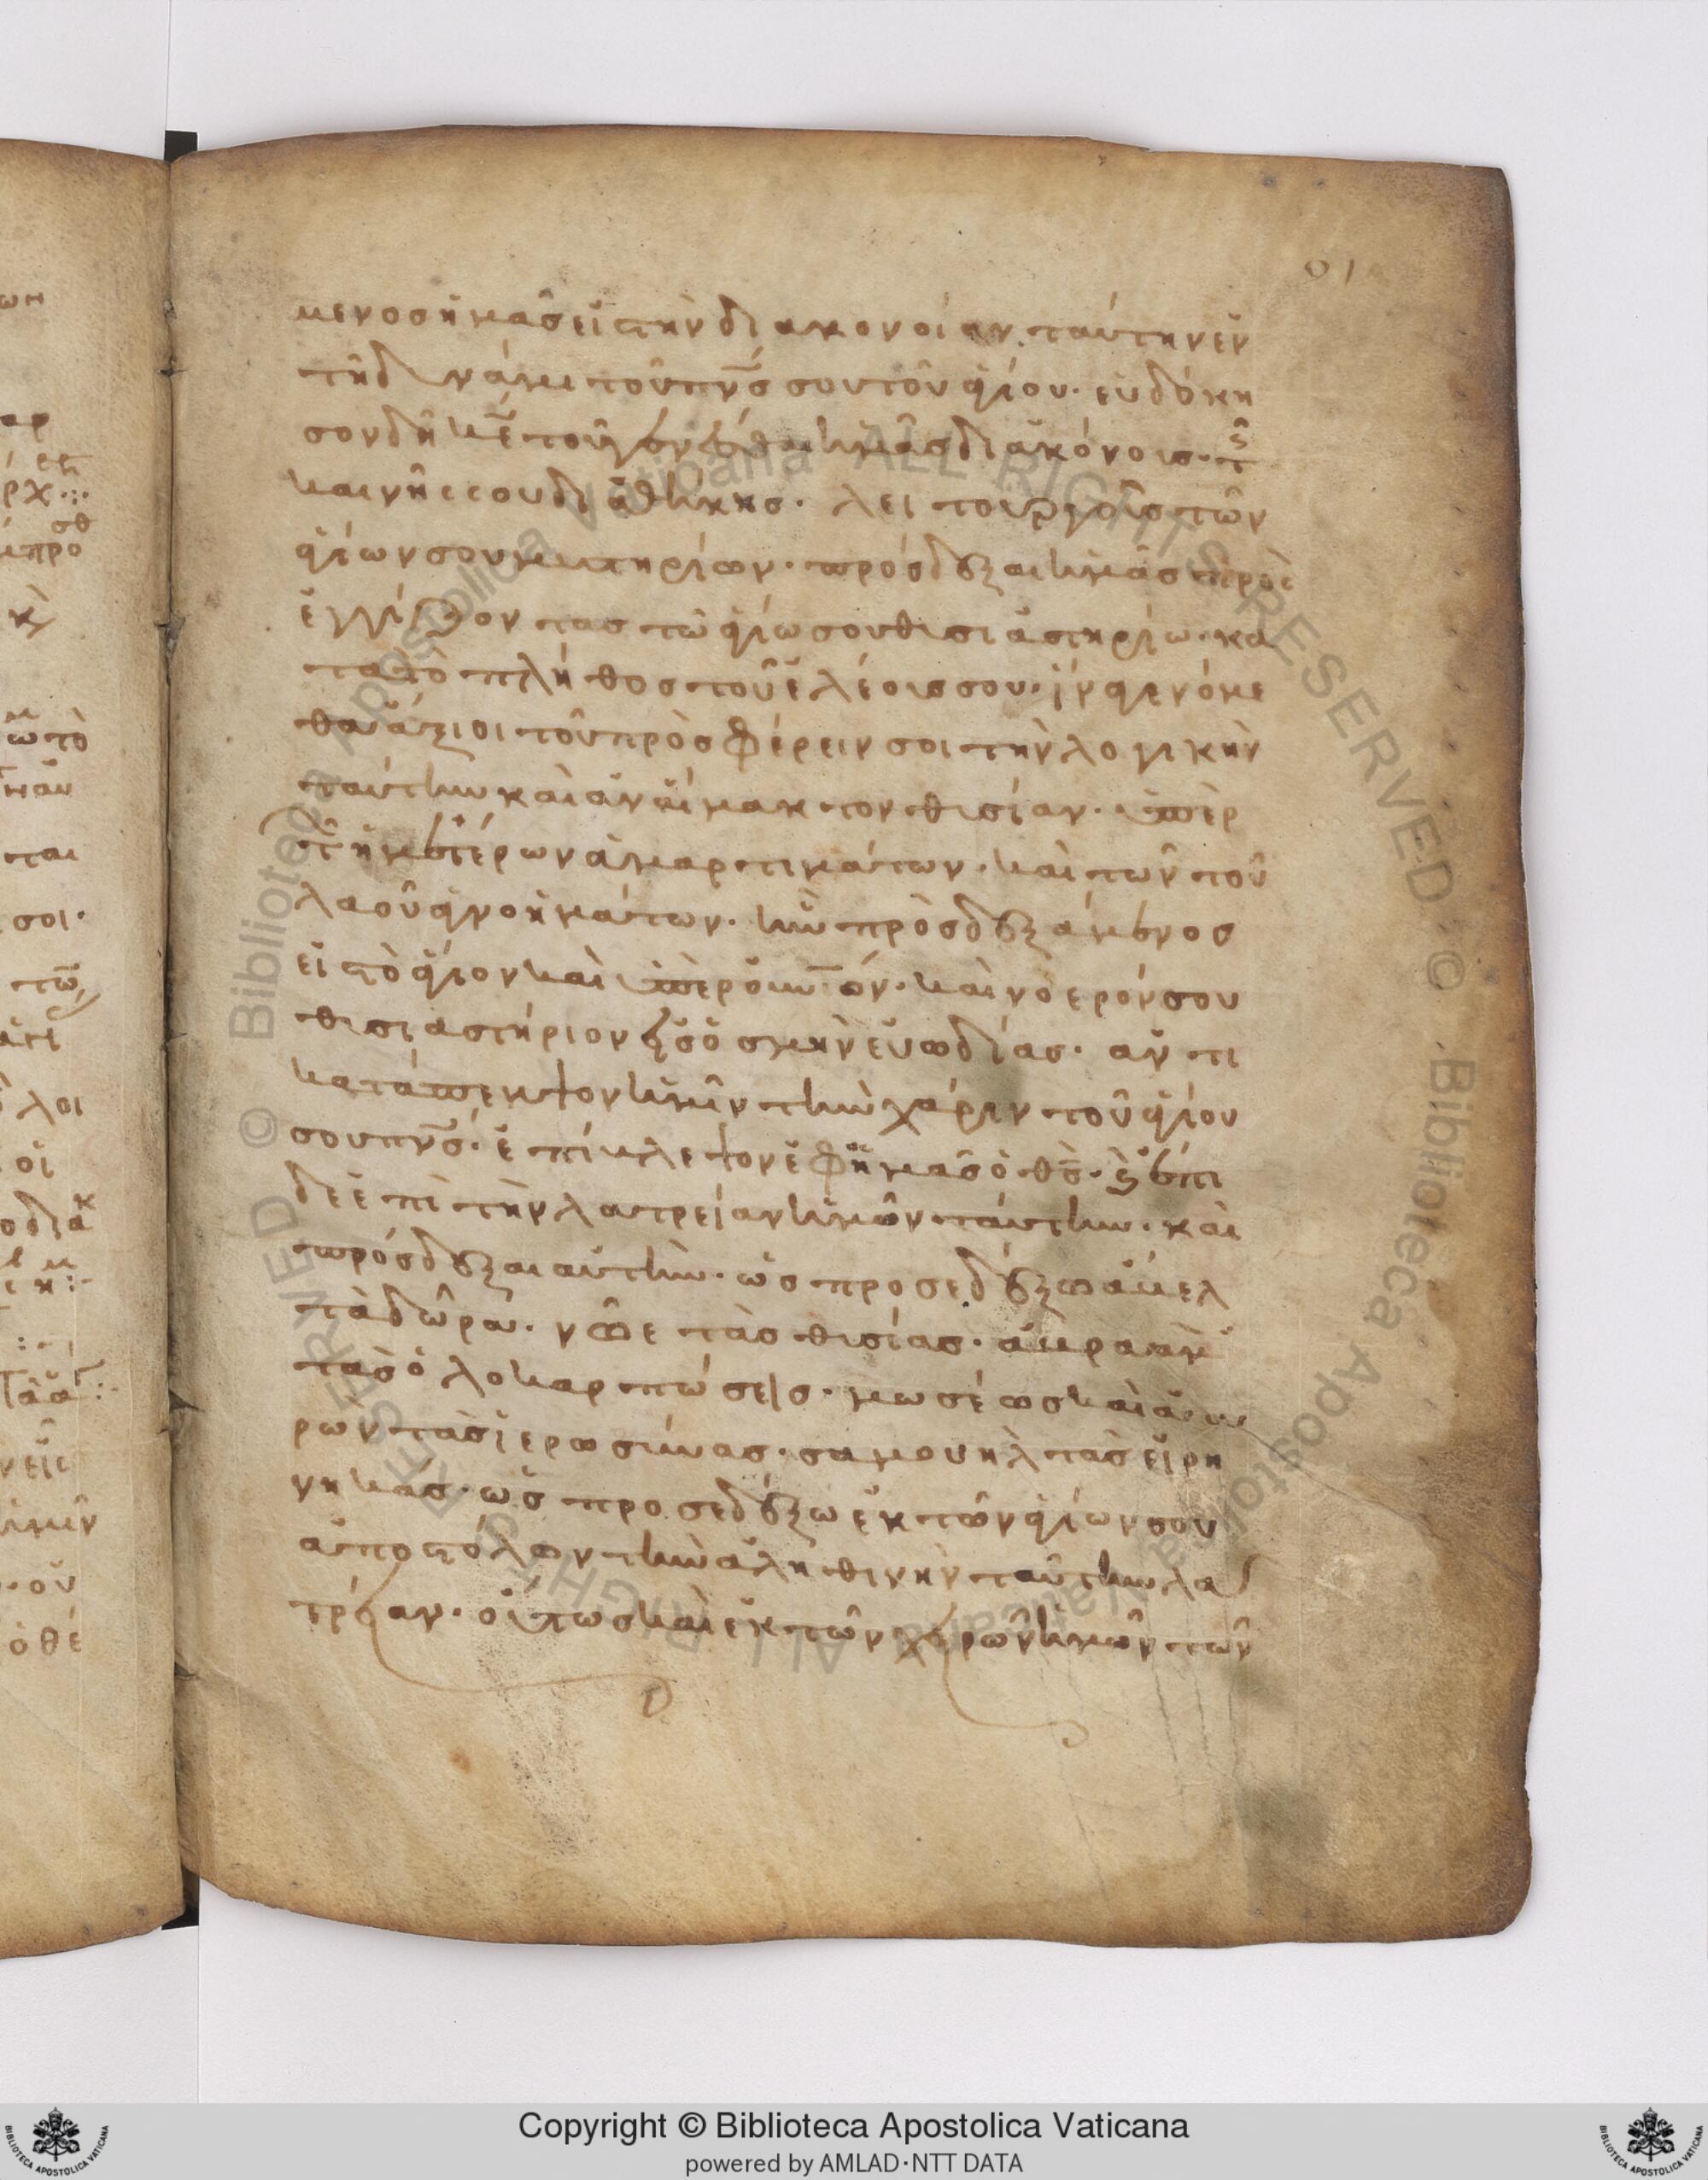 μενοσ ἡμᾶσ εἰσ τὴν διακονοίαν ταύτην ἐν
τῆ δυνάμι τοῦ πνσ σου τοῦ ἁγίου· εὐδόκη
σον δὴ κε τοῦ γενέσθαι ἡμᾶσ διακόνουσ· τῆσ
καινῆσ σου διαθήκησ· λειτουργοῖσ τῶν
ἁγίων σου μυστηρίων· πρόσδεξαι ἡμᾶσ προσ
ἐγγίζοντασ τῶ ἁγίω σου θυσιαστηρίω· κα
τὰ τὸ πλήθοσ τοῦ ἐλέουσ σου· ἵν γενόμε
θα ἄξιοι τοῦ πρὸσφέρειν σοι τὴν λογικὴν
ταύτην καὶ ἀναίμακτον θυσίαν· ὑπὲρ
τῶν ἡμετέρων ἁμαρτιμάτων· καὶ τῶν τοῦ
λαοῦ ἀγνοημάτων· ἣν πρὸσδεξάμενοσ
εἰσ τὸ ἅγιον καὶ ὑπερουνιον· καὶ νοερόν σου
θυσιαστήριον εἰσ ὀσμὴν εὐωδίασ· ἀντι
κατάπεμψον ἡμῖν τὴν χάριν τοῦ ἁγίου
σου πνσ· ἐπίκλεψον ἐφ ἡμᾶσ ὁ θσ· καὶ ἔπι
δε ἐπὶ τὴν λατρείαν ἡμῶν ταύτην· καὶ
πρόσδεξαι αὐτὴν· ὡσ προσεδέξω ἄβελ
τὰ δῶρα· νῶε τὰσ θυσίασ· ἀβραὰμ
τὰσ ὁλοκαρπώσεισ· μωσέωσ καὶ ἀα
ρὼν τὰσ ἱερωσύνασ· σαμουὴλ τὰσ εἰρη
νηκάσ· ὡσ προσεδέξω ἐκ τῶν ἁγίων σου
ἀποστόλων τὴν ἀληθινὴν ταύτην λα
τρείαν· οὕτωσ καὶ ἐκ τῶν χειρῶν ἡμῶν τῶν
Copyright © Biblioteca Apostolica Vaticana
powered by AMLAD·NTT DATA